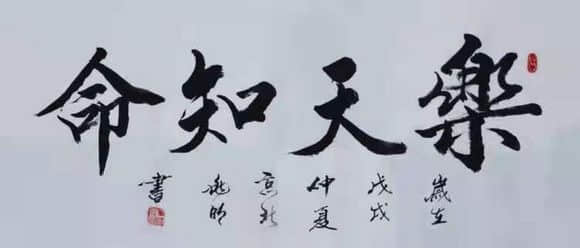 樂天知命
歲在
戊戌
仲夏
書